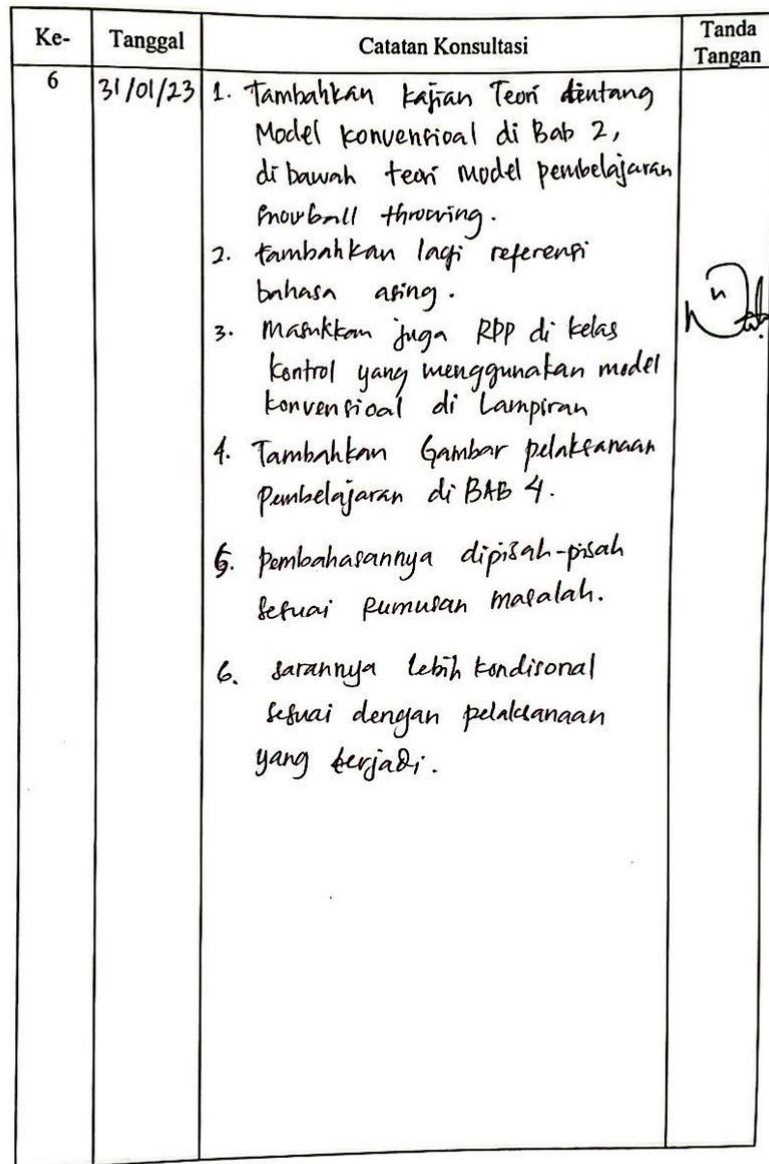 Ke- Tanggal Catatan Konsultasi Tanda
Tangan
6 31/01/23 1. Tambahkan kajian Teori tentang
Model konvensioal di Bab 2,
di bawah teori model pembelajaran
snowball throwing.
2. tambahkan lagi referensi
bahasa asing.
3. Masukkan juga RPP di kelas
kontrol yang menggunakan model
konvensioal di Lampiran
4. Tambahkan Gambar pelaksanaan
Pembelajaran di BAB 4.
5. Pembahasannya dipisah-pisah
sesuai Rumusan masalah.
6. sarannya lebih kondisonal
sesuai dengan pelaksanaan
yang terjadi.